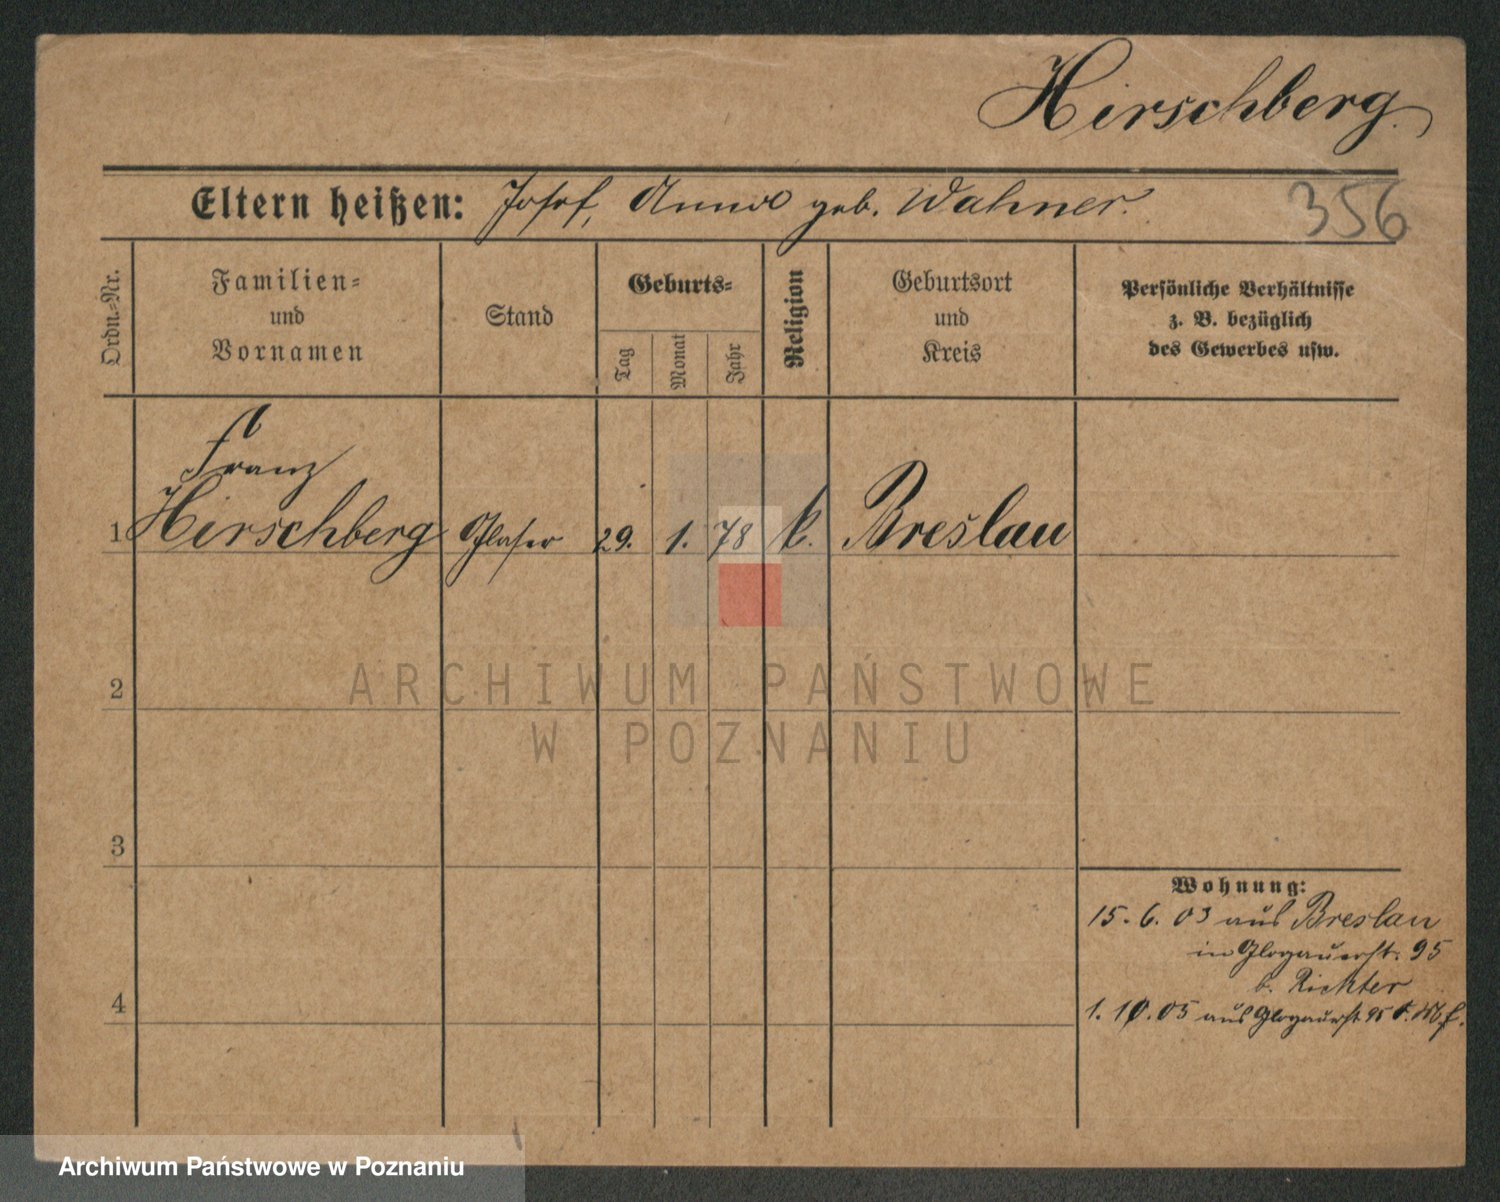 Hirschberg.
Eltern heißen: Josef, Anna geb. Wahner.
356
Ordn.-Nr.
Familien-
und
Vornamen
Stand
Geburts-
Tag
Monat
Jahr
Religion
Geburtsort
und
Kreis
Persönliche Verhältnisse
z. B. bezüglich
des Gewerbes usw.
Franz
1 Hirschberg Glaser 29. 1. 78 k. Breslau
2
ARCHIWUM PAŃSTWOWE
W POZNANIU
3
Wohnung:
15. 6. 03 aus Breslau
in Glogauerst. 95
b. Richter
4
1. 10. 05 aus Glogauerst 95
Archiwum Państwowe w Poznaniu